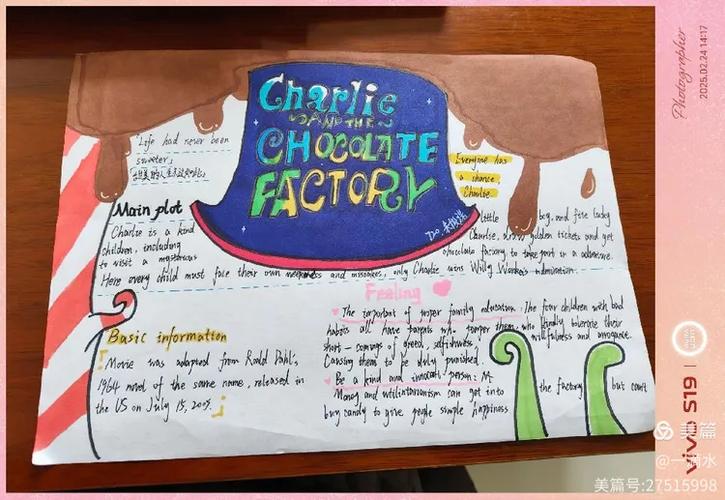 Charlie
AND THE
CHOCOLATE
FACTORY
"Life had never been
sweeter."
Everyone has
a chance,
Charlie.
Main plot
Charlie is a kind little boy, and five lucky
children, including Charlie, golden tickets and get
to visit a mysterious chocolate factory to take part in a
Here every child must face their own and mistakes, only Charlie wins Willy Wonka's admiration.
Feeling
The important of proper family education: The four children with bad
habits all have who kindly tolerate their
short-comings of greed, selfishness, willfulness and arrogance.
Causing them to be duly punished.
Be a kind and innocent person:
Money and utilitarianism can get into the factory but can't
buy candy to give people simple happiness
Basic information
Movie was adapted from Roald Dahl's
1964 novel of the same name, released in
the US on July 15, 2005.
Photographer
2025.02.24 14:17
vivo S19
美篇
@一滴水
美篇号:27515998